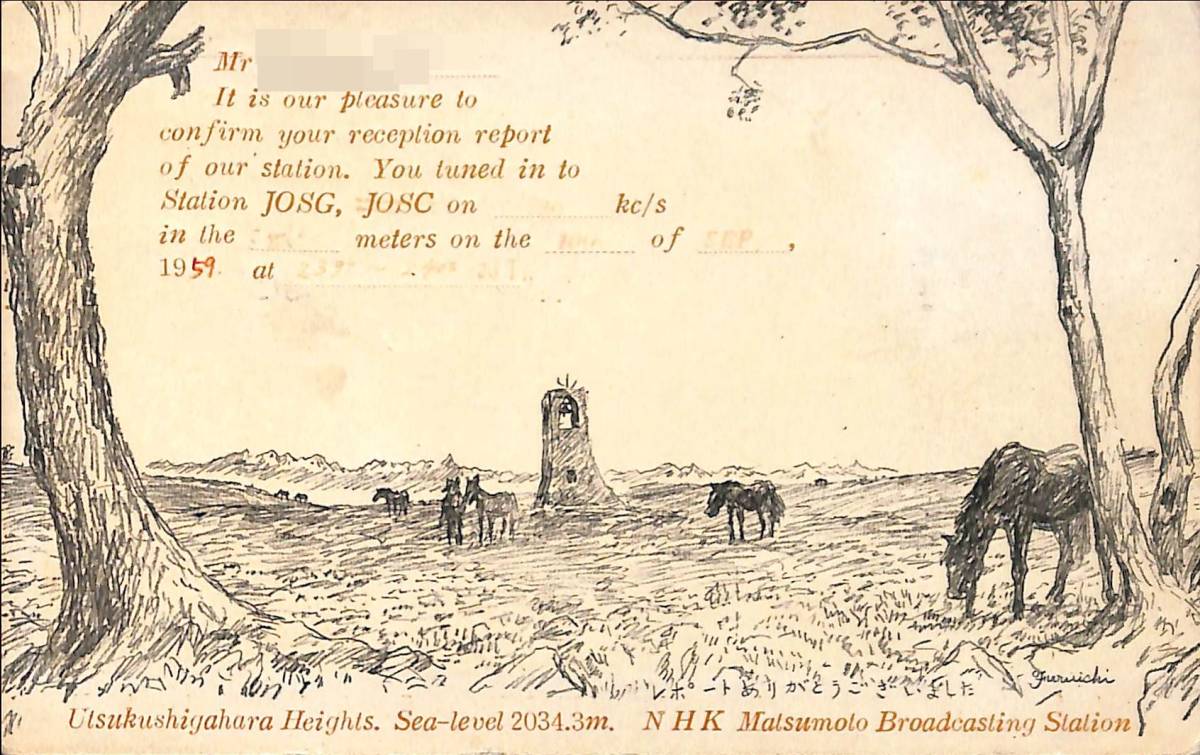 Mr
It is our pleasure to
confirm your reception report
of our station. You tuned in to
Station JOSG, JOSC on kc/s
in the meters on the of SEP. ,
1959. at
レポートありがとうございました
Furuichi
Utsukushigahara Heights. Sea-level 2034.3m. N H K Matsumoto Broadcasting Station